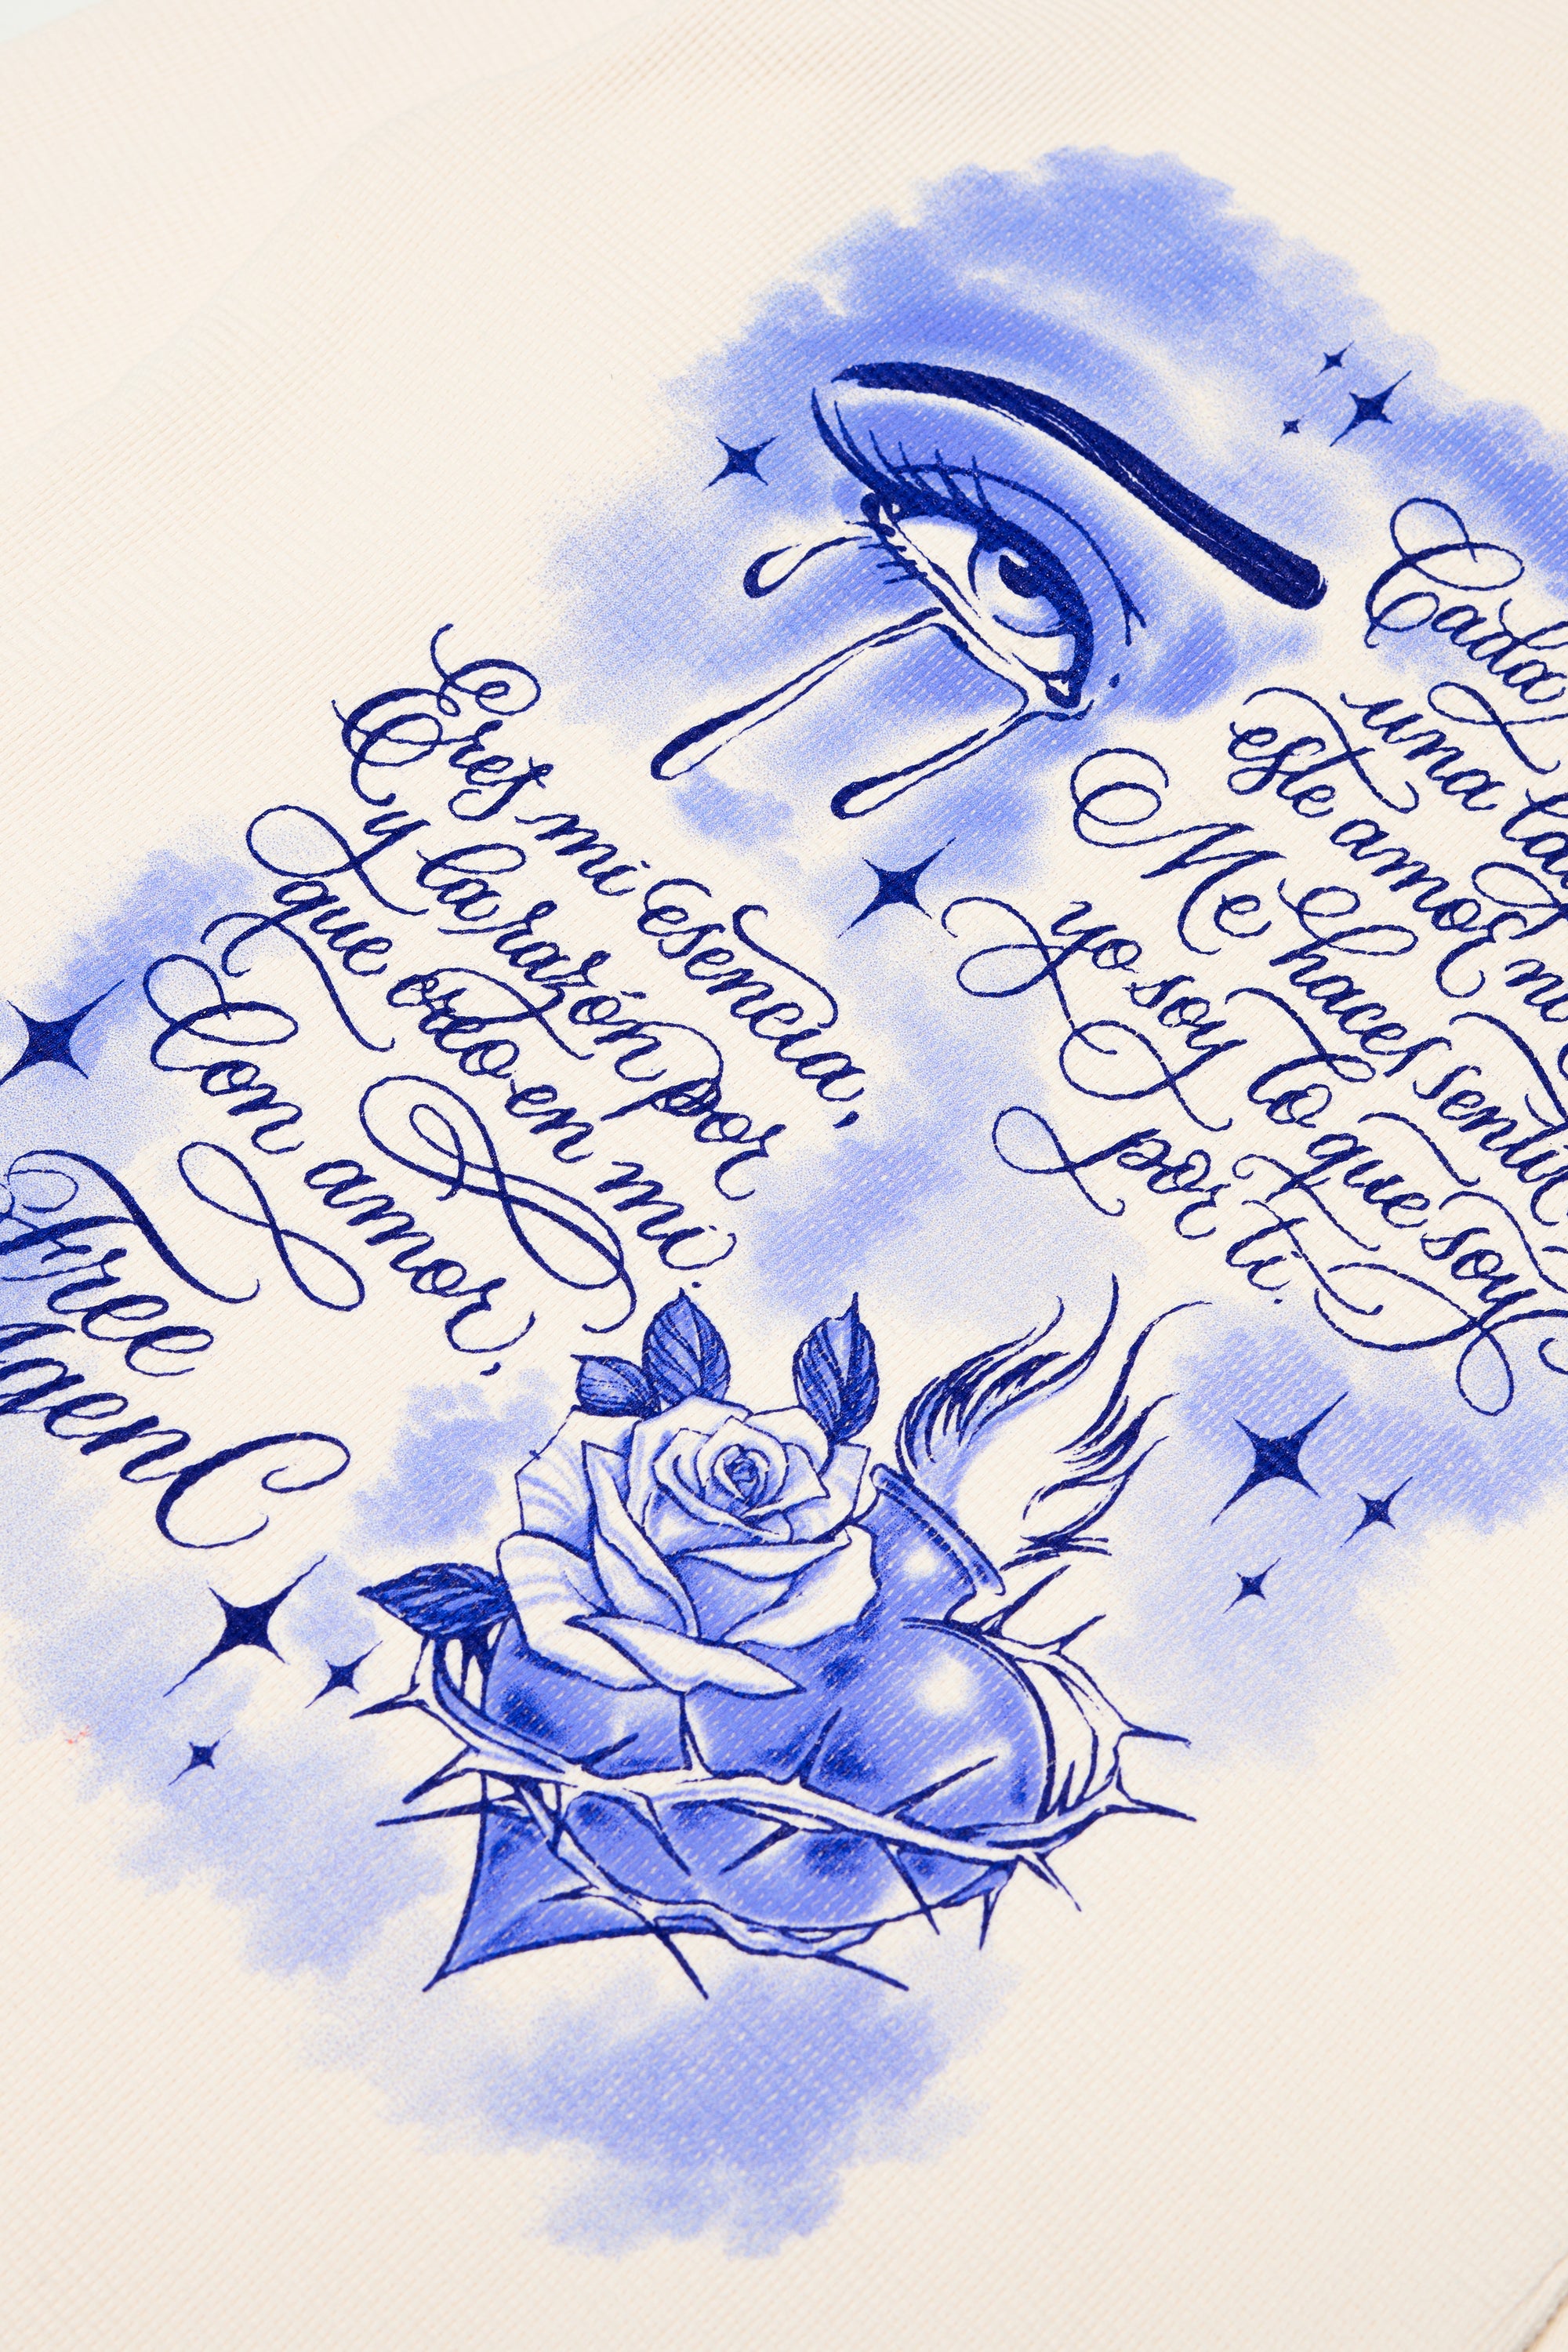 Cada
una
este amor
Me haces sentir
yo soy lo que soy
por ti.
Eres mi esencia,
y la razón por
que creo en mi.
Con amor,
Free
AgenC